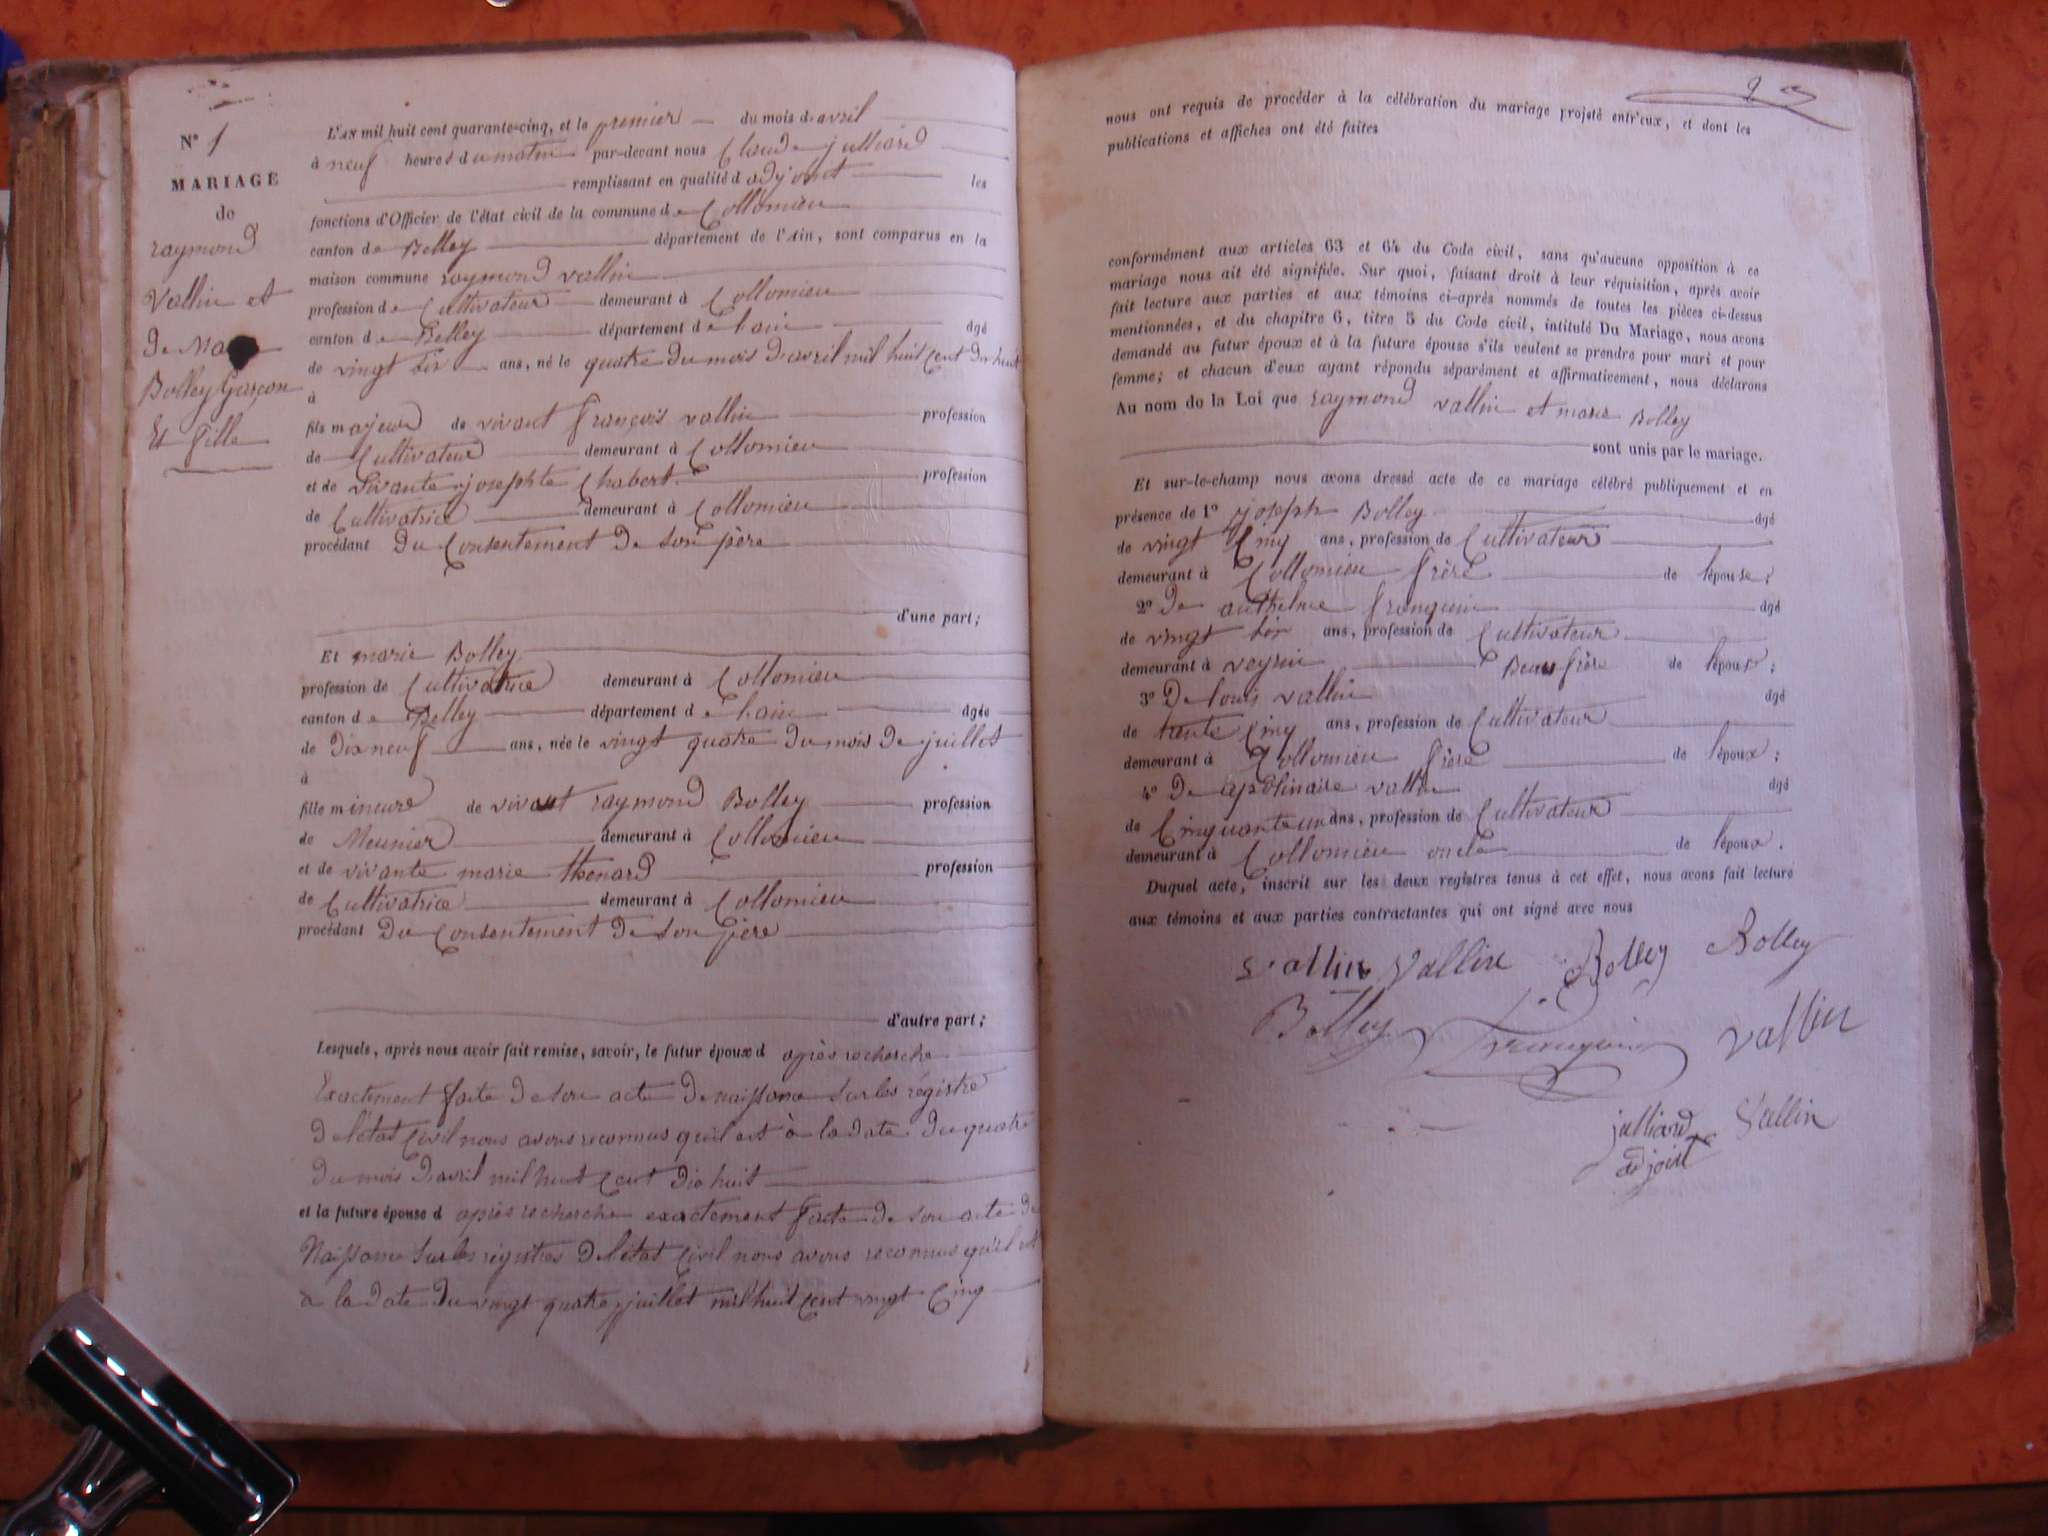 N° 1
MARIAGE
de
raymond
Vallin et
de Ma
Bolley Garçon
Et fille
L'AN mil huit cent quarante-cinq, et le premier du mois d avril
à neuf heures du matin par-devant nous Claude julliard
remplissant en qualité d adjoint les
fonctions d'Officier de l'état civil de la commune de Collomieu
canton de Belley département de l'Ain, sont comparus en la
maison commune raymond vallin
profession de Cultivateur demeurant à Collomieu
canton de Belley département de lain âgé
de vingt six ans, né le quatre du mois d'avril mil huit cent dix huit
à
fils majeur de vivant françois vallin profession
de Cultivateur demeurant à Collomieu
et de vivante josephte Chabert profession
de Cultivatrice demeurant à Collomieu
procédant du Consentement de son père
d'une part;
Et marie Bolley
profession de Cultivatrice demeurant à Collomieu
canton de Belley département de lain âgée
de dix neuf ans, née le vingt quatre du mois de juillet
à
fille mineure de vivant raymond Bolley profession
de Meunier demeurant à Collomieu
et de vivante marie thenard profession
de Cultivatrice demeurant à Collomieu
procédant du Consentement de son père
d'autre part;
Lesquels, après nous avoir fait remise, savoir, le futur époux d après recherche
Exactement faite de son acte de naissance sur les régistre
de létat Civil nous avons reconnus quil est à la date du quatre
du mois d'avril mil huit Cent dix huit
et la future épouse d après recherche exactement faite de son acte de
Naissance sur les registres de létat Civil nous avons reconnus qu'il est
à la date du vingt quatre juillet mil huit Cent vingt Cinq
2
nous ont requis de procéder à la célébration du mariage projeté entr'eux, et dont les
publications et affiches ont été faites
conformément aux articles 63 et 64 du Code civil, sans qu'aucune opposition à ce
mariage nous ait été signifiée. Sur quoi, faisant droit à leur réquisition, après avoir
fait lecture aux parties et aux témoins ci-après nommés de toutes les pièces ci-dessus
mentionnées, et du chapitre 6, titre 5 du Code civil, intitulé Du Mariage, nous avons
demandé au futur époux et à la future épouse s'ils veulent se prendre pour mari et pour
femme; et chacun d'eux ayant répondu séparément et affirmativement, nous déclarons
Au nom de la Loi que raymond vallin et marie Bolley
sont unis par le mariage.
Et sur-le-champ nous avons dressé acte de ce mariage célébré publiquement et en
présence de 1° joseph Bolley âgé
de vingt Cinq ans, profession de Cultivateur
demeurant à Collomieu frère de lépouse;
2° De anthelme franquin âgé
de vingt six ans, profession de Cultivateur
demeurant à veyrin Beaufrère de lépoux;
3° De louis vallin âgé
de trente Cinq ans, profession de Cultivateur
demeurant à Collomieu frère de lépoux;
4° De apolinaire vallin âgé
de Cinquante un ans, profession de Cultivateur
demeurant à Collomieu oncle de lépoux.
Duquel acte, inscrit sur les deux registres tenus à cet effet, nous avons fait lecture
aux témoins et aux parties contractantes qui ont signé avec nous
Vallin Vallin Bolley Bolley
Bolley franquin vallin
julliard Vallin
adjoint